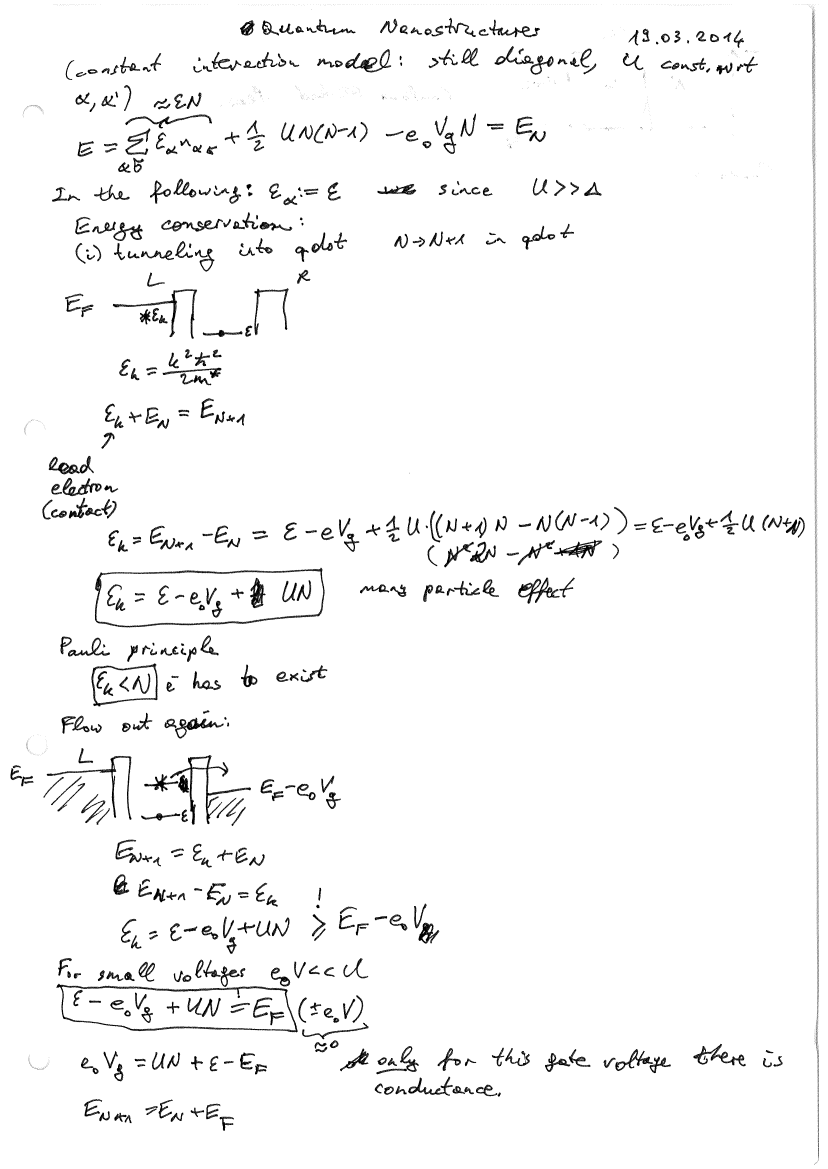 Quantum Nanostructures 19.03.2014
(constant interaction model: still diagonal, U const. wrt
α, α') ≈ εN
E = Σ_{ασ} ε_α n_{ασ} + 1/2 UN(N-1) - e₀V_g N = E_N
In the following: ε_α := ε since U>>Δ
Energy conservation:
(i) tunneling into qdot N→N+1 in qdot
L R
E_F
*ε_k
ε
ε_k = k²ħ²/2m*
ε_k + E_N = E_{N+1}
lead
electron
(contact)
ε_k = E_{N+1} - E_N = ε - eV_g + 1/2 U·((N+1)N - N(N-1)) = ε - e₀V_g + 1/2 U(N+N)
ε_k = ε - e₀V_g + UN many particle effect
Pauli principle
ε_k < N e⁻ has to exist
Flow out again:
L
E_F
E_F - e₀V_g
ε
E_{N+1} = ε_k + E_N
E_{N+1} - E_N = ε_k
!
ε_k = ε - e₀V_g + UN ≥ E_F - e₀V
For small voltages e₀V << U
ε - e₀V_g + UN =! E_F (±e₀V)
≈0
e₀V_g = UN + ε - E_F only for this gate voltage there is
conductance.
E_{N+1} = E_N + E_F